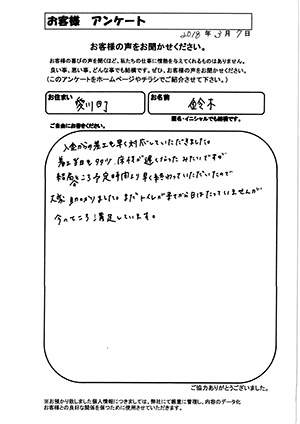 お客様 アンケート
2018年3月7日
お客様の声をお聞かせください。
お客様の喜びの声を聞くほど、私たちの仕事に情熱を与えてくれるものはありません。
良い事、悪い事、どんな事でも結構です。ぜひ、お客様の声をお聞かせください。
(このアンケートをホームページやチラシでご紹介させていただきます。)
お住まい
愛川町
お名前
鈴木
匿名・イニシャルでも結構です。
ご自由にお書きください。
入金からの着工も早く対応していただきました。
着工当日も 床材が遅くなった みたいですが
結局ところ予定時間より早く終わっていただいたので
大変 助かりました。まだトイレが来てから日はたっていませんが
今のところ満足しています。
ご協力ありがとうございました。
※お預かり致しました個人情報につきましては、弊社にて厳重に管理し、内容のデータ化
お客様との良好な関係を保つために使用させていただきます。